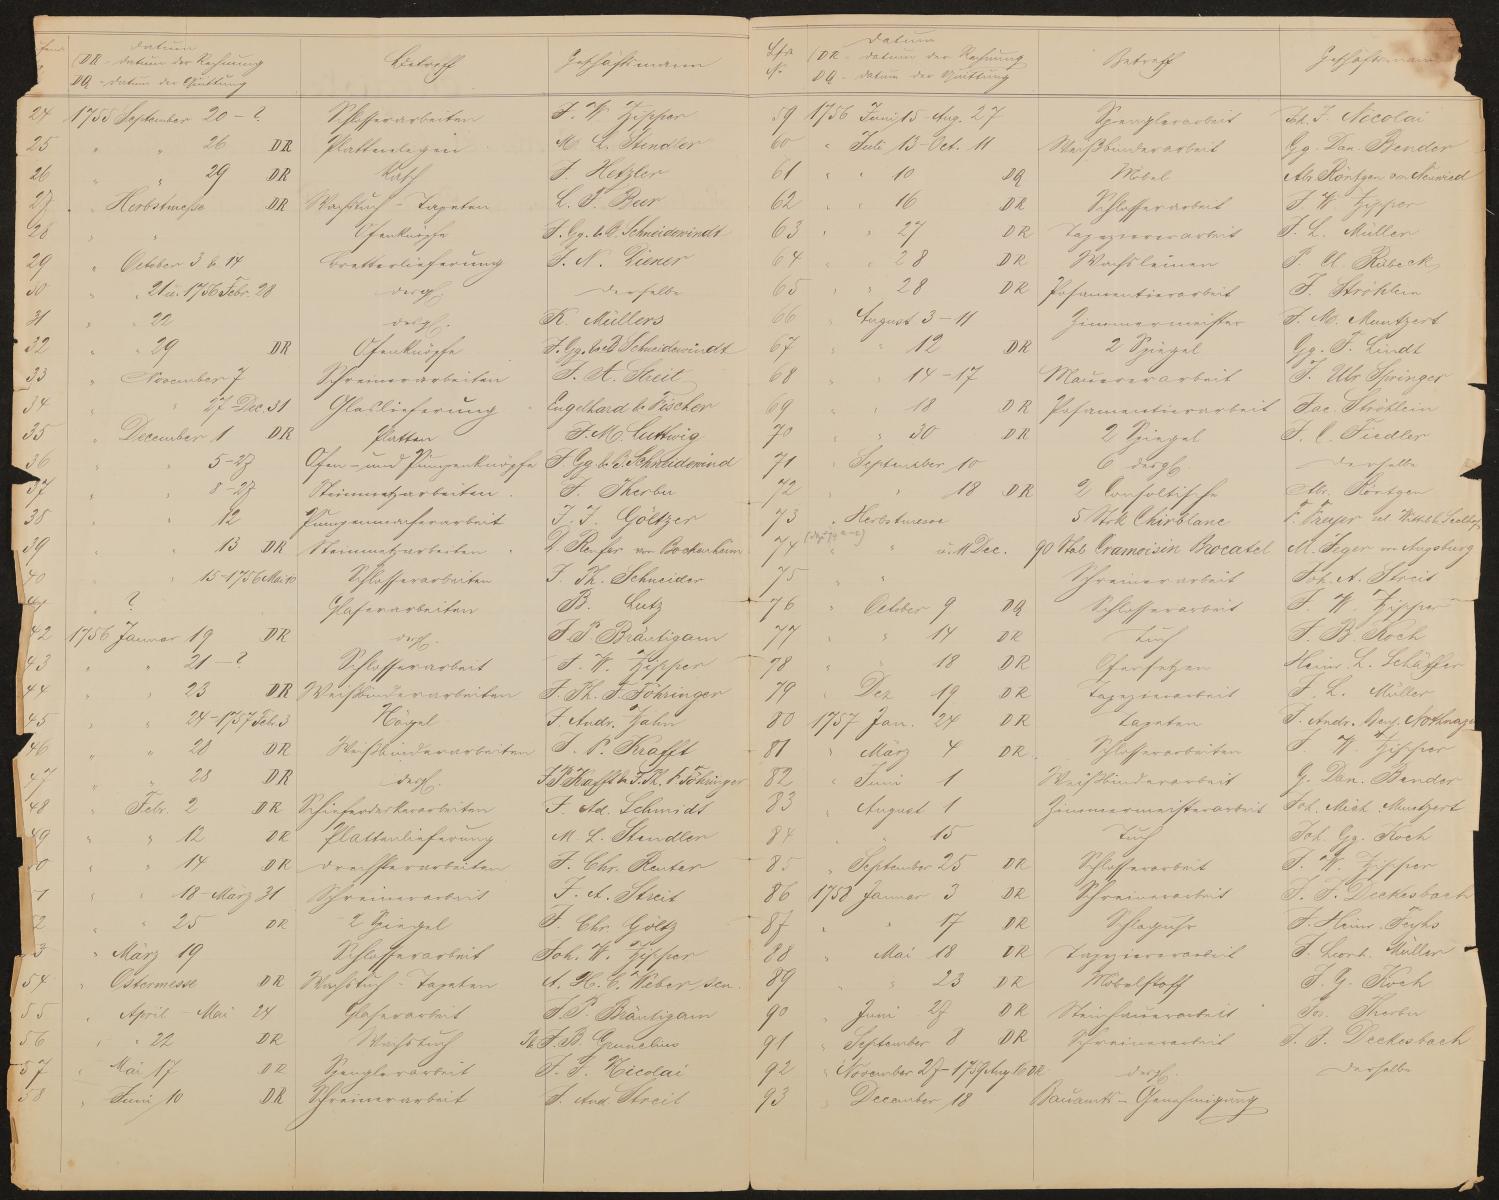 Datum
(DR - Datum der Rechnung
DQ - Datum der Quittung
Betreff
Geschäftsmann
24 1755 September 20 - ? Schlosserarbeiten J. W. Zipper
25 " " 26 DR Plattenlegen M. L. Stendler
26 " " 29 DR Tuch J. Hetzler
27 " Herbstmesse DR Wachstuch - Tapeten L. J. Beer
28 " " Ofenknöpfe J. Gg. & B. Schneidewindt
29 " October 3 & 14 Bretterlieferung J. N. Diener
30 " " 21 u. 1756 Febr. 28 desgl. derselbe
31 " " 22 desgl. K. Müllers
32 " " 29 DR Ofenknöpfe J. Gg. & B. Schneidewindt
33 " November 7 Schreinerarbeiten J. A. Streit
34 " " 27 - Dec. 31 Glaslieferung Engelhard & Fischer
35 " December 1 DR Platten J. M. Luttwig
36 " " 5-27 Ofen- und Pumpenknöpfe J. Gg. & B. Schneidewind
37 " " 8-27 Steinmetzarbeiten J. Therbu
38 " " 12 Pumpenmacherarbeit J. J. Göltzer
39 " " 13 DR Steinmetzarbeiten D. Runfer von Bockenheim
40 " " 15-1756 Mai 10 Schlosserarbeiten J. Th. Schneider
41 " ? Glaserarbeiten B. Lutz
42 1756 Januar 19 DR desgl. J. P. Bräutigam
43 " " 21 - ? Schlosserarbeit J. W. Zipper
44 " " 23 DR Weissbinderarbeiten J. Th. F. Föhringer
45 " " 24-1757 Febr. 3 Nägel J. Andr. Zahn
46 " " 28 DR Weißbinderarbeiten J. P. Krafft
47 " " 28 DR desgl. J. P. Krafft & J. Th. F. Föhringer
48 " Febr. 2 DR Schieferdeckerarbeiten J. Ad. Schmidt
49 " " 12 DR Plattenlieferung M. L. Stendler
50 " " 14 DR Drechslerarbeiten J. Chr. Reuter
51 " " 18-März 31 Schreinerarbeit J. A. Streit
52 " " 25 DR 2 Spiegel J. Chr. Göltz
53 " März 19 Schlosserarbeit Joh. W. Zipper
54 " Ostermesse DR Wachstuch - Tapeten A. H. C. Weber, sen.
55 " April - Mai 24 Glaserarbeit J. P. Bräutigam
56 " " 22 DR Wachstuch J. B. Gunnelius
57 " Mai 17 DR Spenglerarbeit J. J. Nicolai
58 " Juni 10 DR Schreinerarbeit J. And. Streit
Lfde
No.
Datum
(DR - Datum der Rechnung
DQ - Datum der Quittung
Betreff
Geschäftsmann
59 1756 Juni 15-Aug. 27 Spenglerarbeit Joh. J. Nicolai
60 " Juli 13-Oct. 11 Weißbinderarbeit Gg. Dan. Bender
61 " " 10 DQ Möbel Abr. Röntgen von Neuwied
62 " " 16 DR Schlosserarbeit J. W. Zipper
63 " " 27 DR Tapeziererarbeit J. L. Müller
64 " " 28 DR Wachsleinen P. A. Rübeck
65 " " 28 DR Posamentierarbeit J. Ströhlein
66 " August 3-11 Zimmermeister J. M. Muntzert
67 " " 12 DR 2 Spiegel Gg. F. Lindt
68 " " 14-17 Maurerarbeit J. Ulr. Springer
69 " " 18 DR Posamentierarbeit Jac. Ströhlein
70 " " 30 DR 2 Spiegel J. C. Fiedler
71 " September 10 6 desgl. derselbe
72 " " 18 DR 2 Consoltische Abr. Röntgen
73 " Herbstmesse 5 Stck Chirblanc
74 " " u. 11 Dec. 90 Stab Cramoisin Brocatel M. Seger von Augsburg
75 " " Schreinerarbeit Joh. A. Streit
76 " October 9 DQ Schlosserarbeit J. W. Zipper
77 " " 14 DR Tuch J. B. Koch
78 " " 18 DR Ofensetzen Heinr. L. Schäffer
79 " Dez 19 DR Tapezierarbeit J. L. Müller
80 1757 Jan. 24 DR Tapeten J. Andr. Benj. Nothnagel
81 " März 4 DR Schlosserarbeiten J. W. Zipper
82 " Juni 1 Weißbinderarbeit G. Dan. Bender
83 " August 1 Zimmermeisterarbeit Joh. Mich. Muntzert
84 " " 15 Tuch Joh. Gg. Koch
85 " September 25 DR Schlosserarbeit J. W. Zipper
86 1758 Januar 3 DR Schreinerarbeit J. J. Deckesbach
87 " " 17 DR Schlaguhr J. Heinr. Fuchs
88 " Mai 18 DR Tapeziererarbeit J. Leonh. Müller
89 " " 23 DR Möbelstoff J. G. Koch
90 " Juni 27 DR Steinhauerarbeit Jos. Therbu
91 " September 8 DR Schreinerarbeit J. J. Deckesbach
92 " November 27-1759 Aug. 16 DR desgl. derselbe
93 " December 18 Bauamts-Genehmigung